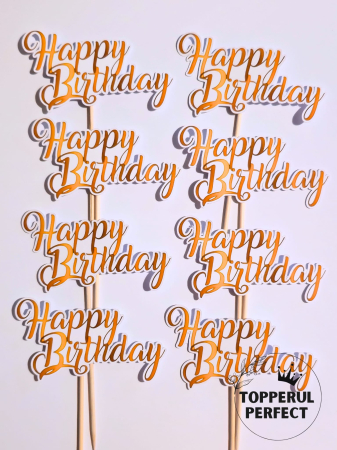 Happy
Birthday
Happy
Birthday
Happy
Birthday
Happy
Birthday
Happy
Birthday
Happy
Birthday
Happy
Birthday
Happy
Birthday
TOPPERUL
PERFECT